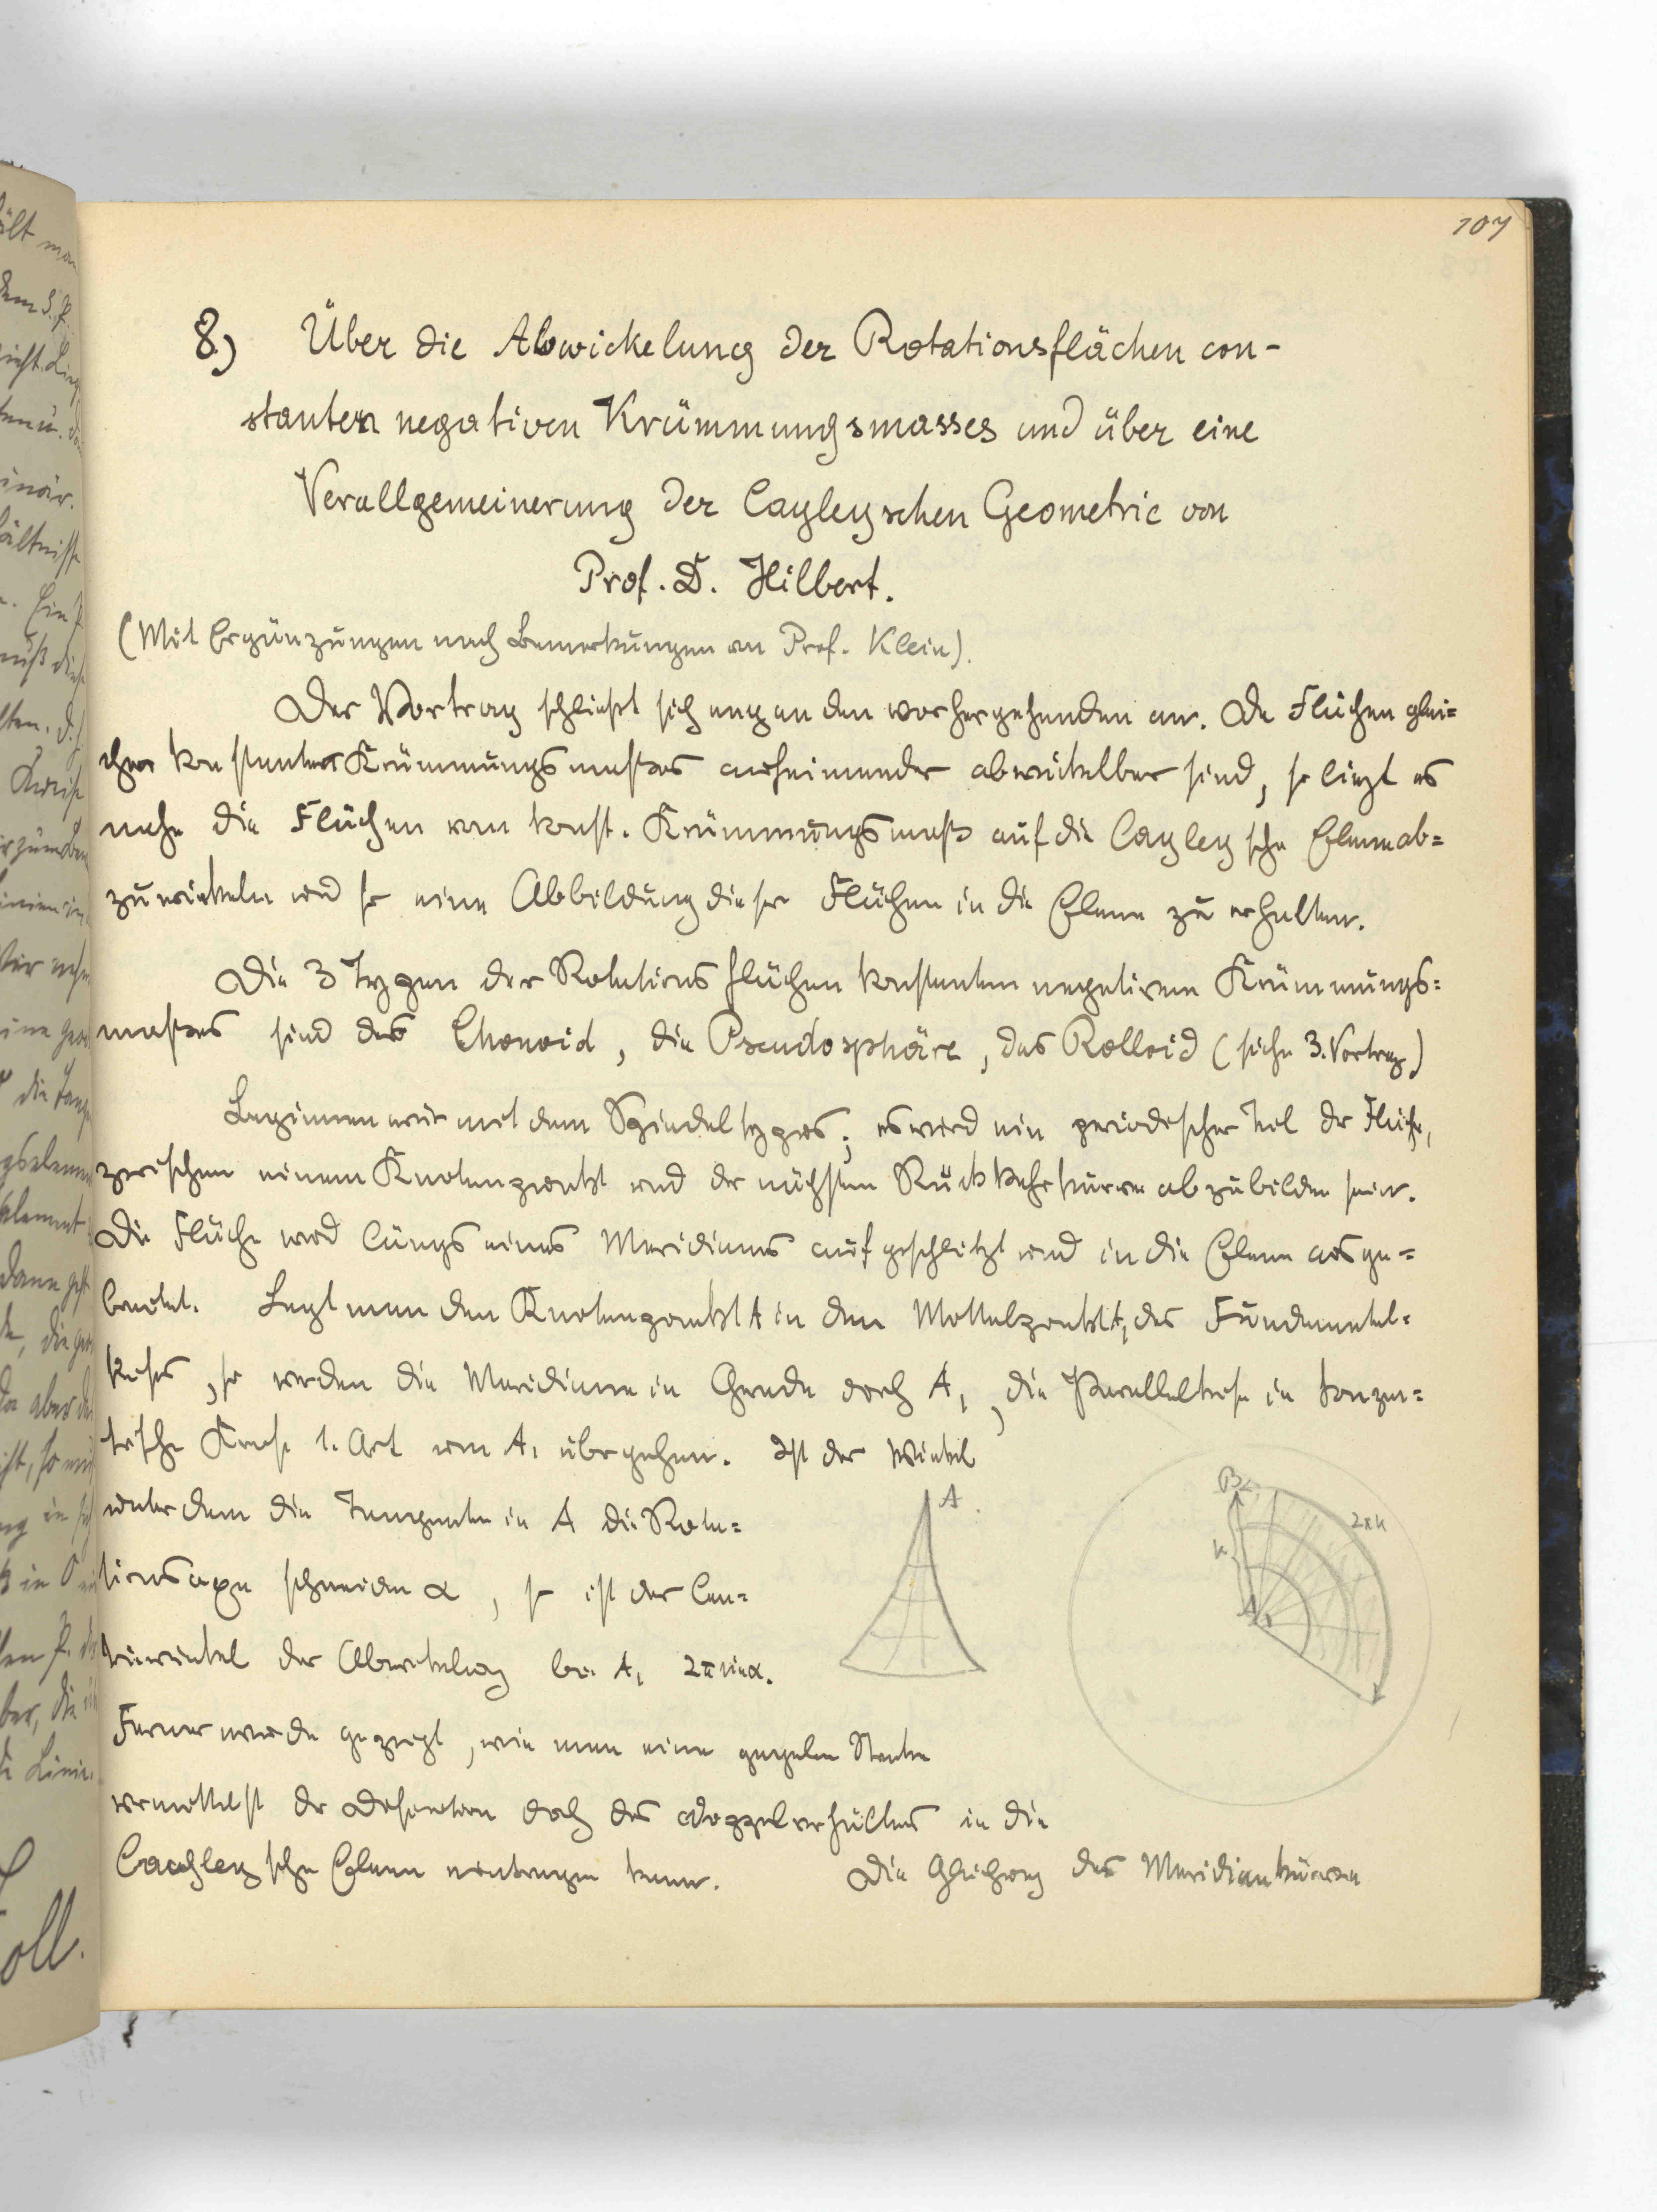 107
8) Über die Abwickelung der Rotationsflächen con-
stanten negativen Krümmungsmasses und über eine
Verallgemeinerung der Cayleyschen Geometrie von
Prof. D. Hilbert.
(Mit Ergänzungen nach Bemerkungen von Prof. Klein).
Der Vortrag schließt sich eng an den vorhergehenden an. Da Flächen glei=
cher konstanter Krümmungsmasses aufeinander abwickelbar sind, so liegt es
nahe die Flächen von konst. Krümmungsmaß auf die Cayleysche Ebene ab=
zuwickeln und so eine Abbildung dieser Flächen in die Ebene zu erhalten.
Die 3 Typen der Rotationsflächen konstanten negativen Krümmungs=
masses sind das Conoid, die Pseudosphäre, das Rolloid (siehe 3. Vortrag)
Beginnen wir mit dem Spindeltypus; es wird ein periodischer Teil der Fläche,
zwischen einem Knotenpunkt und der nächsten Rückkehrkurve abzubilden sein.
Die Fläche wird längs eines Meridians aufgeschlitzt und in die Ebene ausge=
breitet. Legt man den Knotenpunkt A in den Mittelpunkt A, des Fundamental=
kreises, so werden die Meridiane in Gerade durch A1, die Parallelkreise in konzen=
trische Kreise 1. Art um A1 übergehen. Ist der Winkel
unter dem die Tangente in A die Rota=
tionsaxe schneiden α, so ist der Cen=
triwinkel der Abwickelung bei A1 2π sin α.
Ferner wurde gezeigt, wie man eine gegeben Strecke
vermittelst der Definition durch das Doppelverhältnis in die
Cayleysche Ebene eintragen kann. Die Gleichung des Meridiankurven
A
B1
2πκ
κ
A1